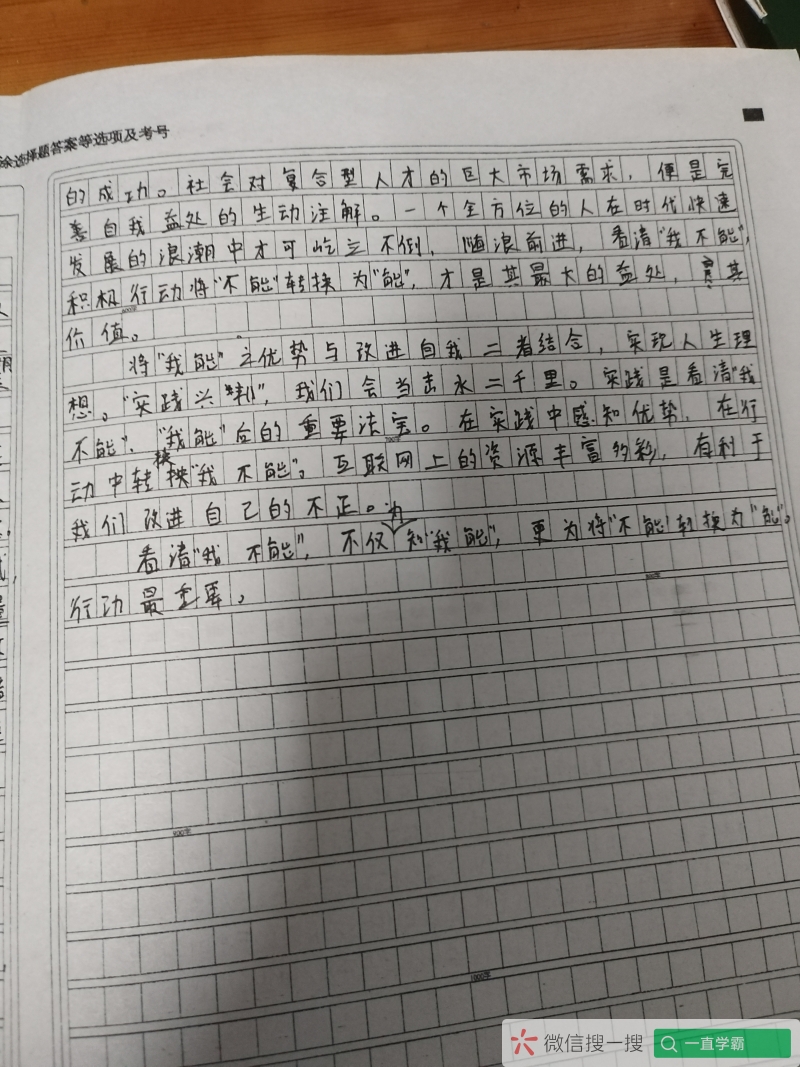 余选择题答案等选项及考号
的成功。社会对复合型人才的巨大市场需求，便是完
善自我益处的生动注解。一个全方位的人在时代快速
发展的浪潮中才可屹立不倒，随浪前进，看清“我不能”，
积极行动将“不能”转换为“能”，才是其最大的益处，其
600字
价值。
将“我能”之优势与改进自我二者结合，实现人生理
想。“实践兴邦”，我们会当击水二千里。实践是看清“我
不能”、“我能”后的重要法宝。在实践中感知优势，在行
700字
动中转换“我不能”。互联网上的资源丰富多彩，有利于
我们改进自己的不正。
看清“我不能”，不仅为知“我能”，更为将“不能”转换为“能”。
800字
行动最重要。
900字
1000字
微信搜一搜
一直学霸